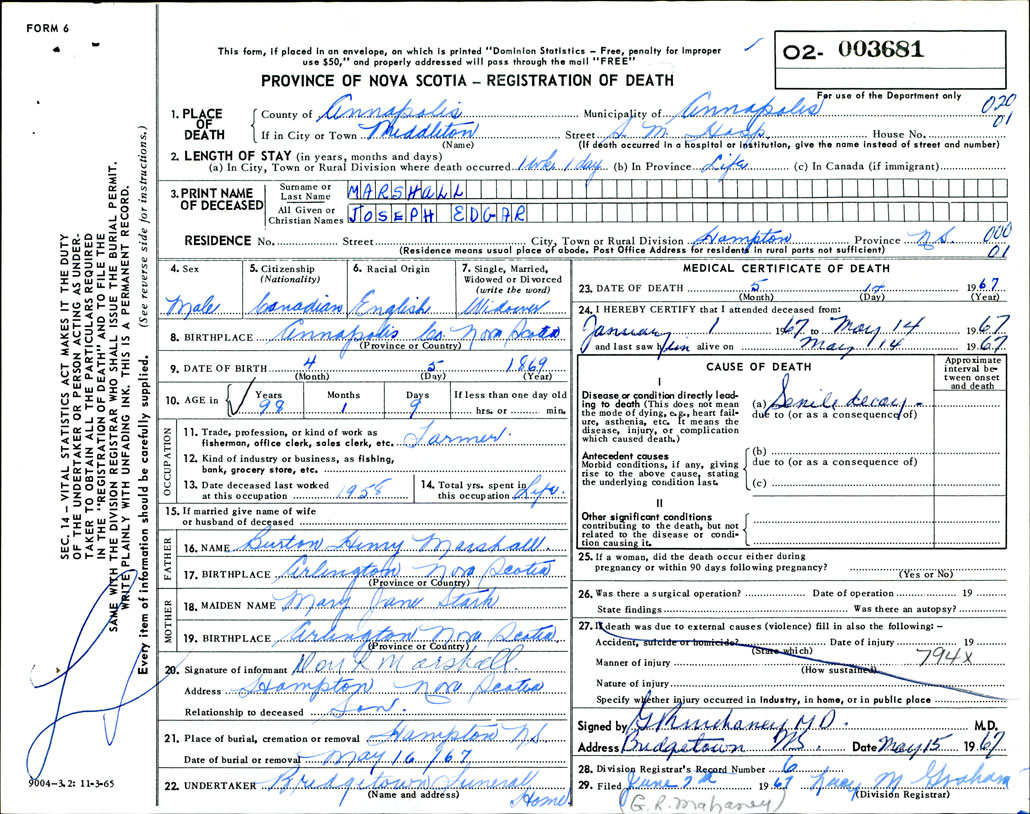 FORM 6
This form, if placed in an envelope, on which is printed "Dominion Statistics – Free, penalty for Improper
use $50," and properly addressed will pass through the mail "FREE"
02- 003681
PROVINCE OF NOVA SCOTIA – REGISTRATION OF DEATH
For use of the Department only
020
01
1. PLACE OF DEATH
County of Annapolis Municipality of Annapolis
If in City or Town Middleton Street S. M. Hosp House No.
(Name) (If death occurred in a hospital or institution, give the name instead of street and number)
2. LENGTH OF STAY (in years, months and days)
(a) In City, Town or Rural Division where death occurred 1 wk. 1 day (b) In Province Life (c) In Canada (if immigrant)
3. PRINT NAME OF DECEASED
Surname or Last Name MARSHALL
All Given or Christian Names JOSEPH EDGAR
RESIDENCE No. Street City, Town or Rural Division Hampton Province N.S. 000
(Residence means usual place of abode. Post Office Address for residents in rural parts not sufficient) 01
4. Sex
Male
5. Citizenship
(Nationality)
Canadian
6. Racial Origin
English
7. Single, Married,
Widowed or Divorced
(write the word)
Widower
8. BIRTHPLACE Annapolis Co. Nova Scotia
(Province or Country)
9. DATE OF BIRTH 4 5 1869
(Month) (Day) (Year)
10. AGE in
Years Months Days If less than one day old
98 1 9 hrs. or min.
OCCUPATION
11. Trade, profession, or kind of work as
fisherman, office clerk, sales clerk, etc. Farmer.
12. Kind of industry or business, as fishing,
bank, grocery store, etc.
13. Date deceased last worked
at this occupation 1958
14. Total yrs. spent in
this occupation Life.
15. If married give name of wife
or husband of deceased
FATHER
16. NAME Burton Henry Marshall.
17. BIRTHPLACE Arlington Nova Scotia
(Province or Country)
MOTHER
18. MAIDEN NAME Mary Jane Stark
19. BIRTHPLACE Arlington Nova Scotia
(Province or Country)
20. Signature of informant Marshall
Address Hampton Nova Scotia
Relationship to deceased Son.
21. Place of burial, cremation or removal Hampton N.S.
Date of burial or removal May 16/67
22. UNDERTAKER Bridgetown Funeral
(Name and address) Home
MEDICAL CERTIFICATE OF DEATH
23. DATE OF DEATH 5 1967
(Month) (Day) (Year)
24. I HEREBY CERTIFY that I attended deceased from:
January 1 1967 to May 14 1967
and last saw him alive on May 14 1967.
CAUSE OF DEATH
Approximate interval between onset and death
I
Disease or condition directly leading to death (This does not mean the mode of dying, e.g., heart failure, asthenia, etc. It means the disease, injury, or complication which caused death.)
(a) Senile decay –
due to (or as a consequence of)
Antecedent causes
Morbid conditions, if any, giving rise to the above cause, stating the underlying condition last.
(b)
due to (or as a consequence of)
(c)
II
Other significant conditions
contributing to the death, but not related to the disease or condition causing it.
25. If a woman, did the death occur either during
pregnancy or within 90 days following pregnancy?
(Yes or No)
26. Was there a surgical operation? Date of operation 19
State findings Was there an autopsy?
27. If death was due to external causes (violence) fill in also the following: –
Accident, suicide or homicide? Date of injury 19
(State which) 794X
Manner of injury
(How sustained)
Nature of injury
Specify whether injury occurred in Industry, in home, or in public place
Signed by M.D. M.D.
Address Bridgetown N.S. Date May 15 1967
28. Division Registrar's Record Number 6
29. Filed June 1967 M. Graham
(G. R. Mahaney) (Division Registrar)
SEC. 14 – VITAL STATISTICS ACT MAKES IT THE DUTY
OF THE UNDERTAKER OR PERSON ACTING AS UNDER-
TAKER TO OBTAIN ALL THE PARTICULARS REQUIRED
IN THE "REGISTRATION OF DEATH" AND TO FILE THE
SAME WITH THE DIVISION REGISTRAR WHO SHALL ISSUE THE BURIAL PERMIT.
WRITE PLAINLY WITH UNFADING INK. THIS IS A PERMANENT RECORD.
Every item of information should be carefully supplied. (See reverse side for instructions.)
9004-3.2: 11-3-65